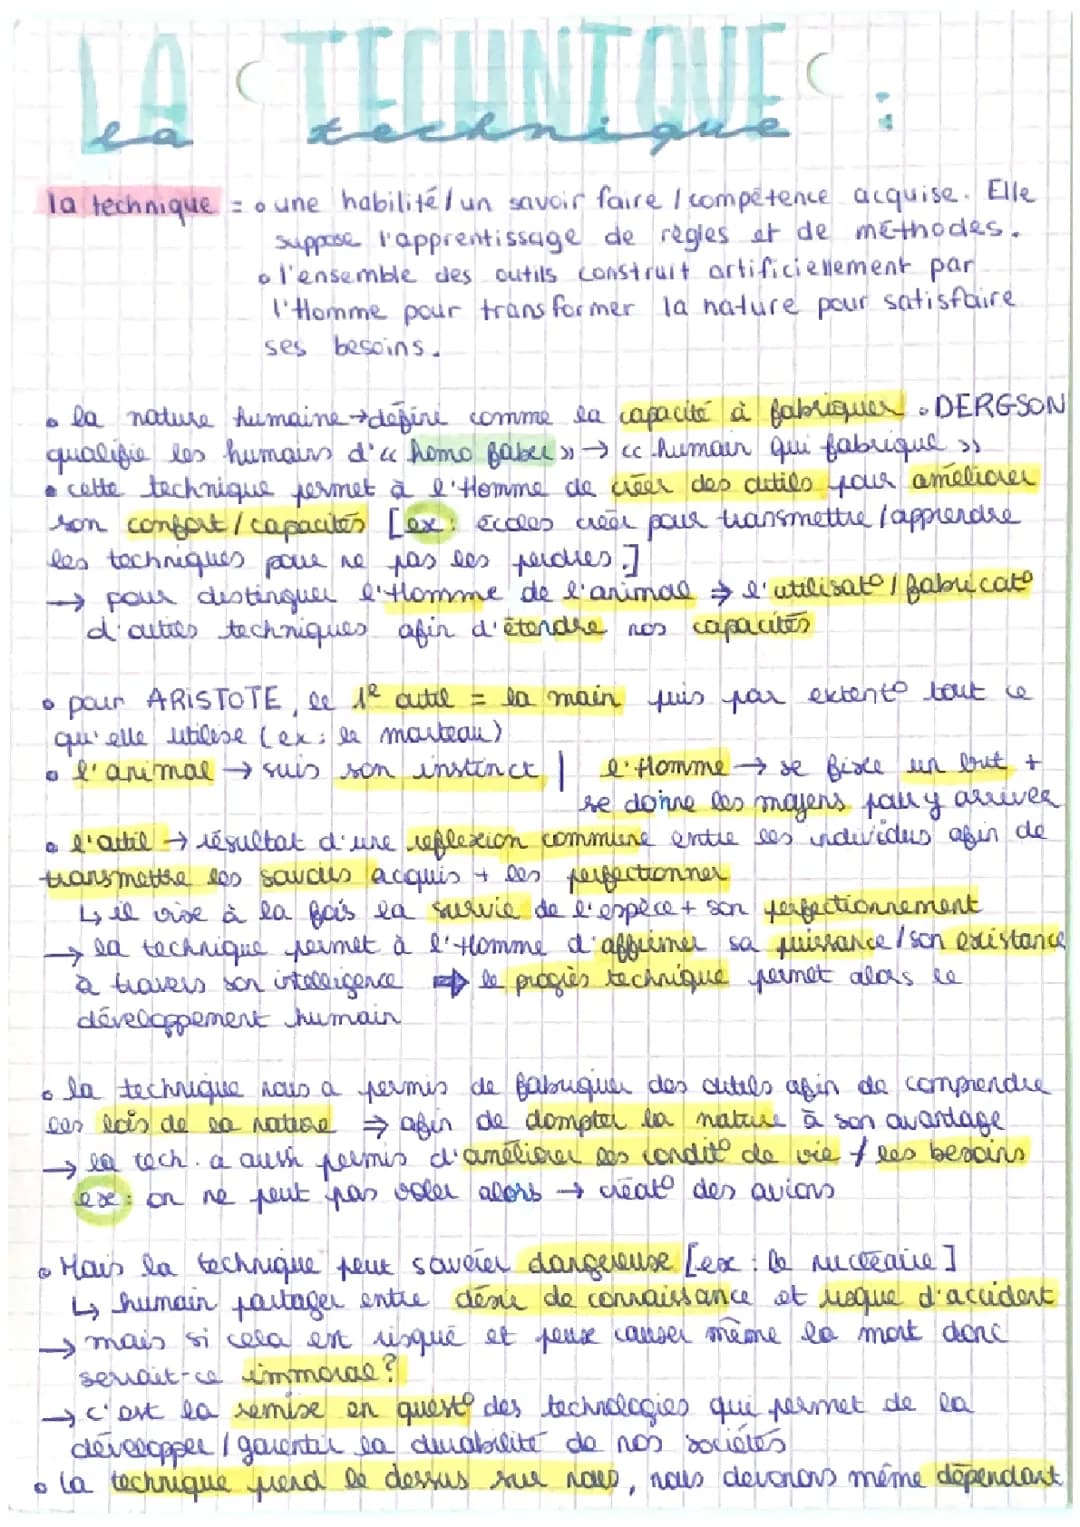 LA TECHNIQUE :
la technique
la technique = o une habilité / un savoir faire / compétence acquise. Elle
suppose l'apprentissage de règles et de méthodes.
o l'ensemble des outils construit artificiellement par
l'Homme pour transformer la nature pour satisfaire
ses besoins.
• la nature humaine → défini comme la capacité à fabriquer. DERGSON
qualifie les humains d'« homo faber » → « humain qui fabrique »
• cette technique permet à l'Homme de créer des outils pour améliorer
son confort / capacités [ex : écoles créer pour transmettre / apprendre
les techniques pour ne pas les perdres.]
→ pour distinguer l'Homme de l'animal ⇒ l'utilisat° / fabricat°
d'autres techniques afin d'étendre nos capacités
• pour ARISTOTE, le 1e outil = la main puis par extent° tout ce
qu'elle utilise (ex : le marteau)
• l'animal → suis son instinct | l'Homme → se fixe un but +
se donne les moyens pour y arriver
• l'outil → résultat d'une reflexion commune entre les individus afin de
transmettre les savoirs acquis + les perfectionner
↳ il vise à la fois la survie de l'espèce + son perfectionnement
→ la technique permet à l'Homme d'affirmer sa puissance / son existance
à travers son intelligence ⇒ le progrès technique permet alors le
développement humain
• la technique nous a permis de fabriquer des outils afin de comprendre
les lois de la nature ⇒ afin de dompter la nature à son avantage
→ la tech. a aussi permis d'améliorer les condit° de vie / les besoins
ex : on ne peut pas voler alors → créat° des avions
• Mais la technique peut savérer dangereuse [ex : le nucléaire]
↳ humain partager entre désir de connaissance et risque d'accident
→ mais si cela est risqué et peux causer même la mort donc
serait-ce immoral ?
→ c'est la remise en quest° des technologies qui permet de la
développer / garentir la durabilité de nos sociétés
• la technique prend le dessus sur nous, nous devenons même dépendant